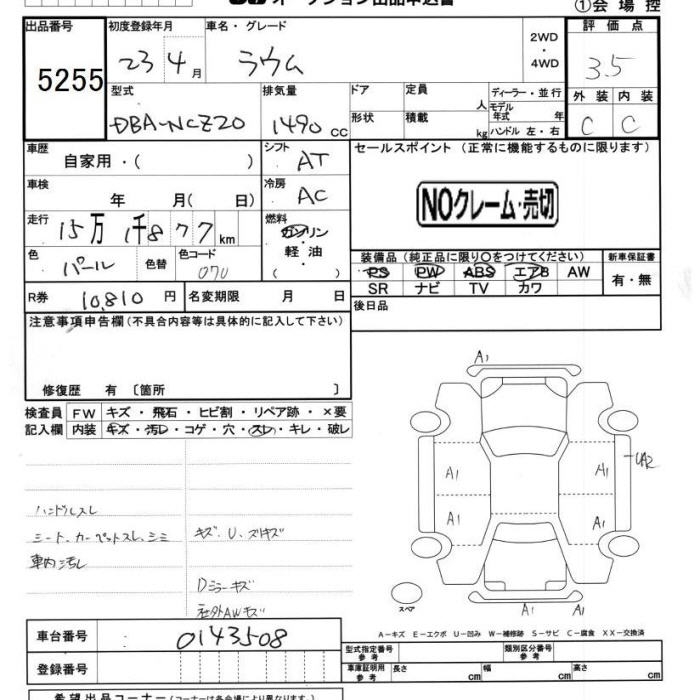 オークション出品申込書
①会場控
出品番号 初度登録年月 車名・グレード 2WD・4WD 評価点
5255 23 4月 ラウム 3.5
型式 排気量 ドア 定員 人 ディーラー・並行 外装 内装
DBA-NCZ20 1490cc 形状 積載 kg モデル年式 年 ハンドル 左・右 C C
車歴 自家用・( ) シフト AT セールスポイント (正常に機能するものに限ります)
車検 年 月( 日) 冷房 AC
NOクレーム・売切
走行 15万 1千8 77km 燃料 ガソリン・軽油 ( )
色 パール 色替 色コード 070
装備品 (純正品に限り○をつけてください) 新車保証書
PS PW ABS エアB AW 有・無
SR ナビ TV カワ
R券 10,810円 名変期限 月 日 後日品
注意事項申告欄 (不具合内容等は具体的に記入して下さい)
修復歴 有 〔箇所 〕
検査員 FW キズ・飛石・ヒビ割・リペア跡・×要
記入欄 内装 キズ・汚レ・コゲ・穴・スレ・キレ・破レ
A1
UA2
A1 A1
A1 A1
ハンドルスレ
シート、カーペットスレ、シミ キズ、U、ズリキズ
車内汚レ
Dミラーキズ
社外AWキズ
スペア
A1 A1
A-キズ E-エクボ U-凹み W-補修跡 S-サビ C-腐食 XX-交換済
車台番号 0143508
型式指定番号 参考 類別区分番号 参考
登録番号 車庫証明用 参考 長さ cm 幅 cm 高さ cm
希望出品コーナー (コーナーは各会場により異なります)